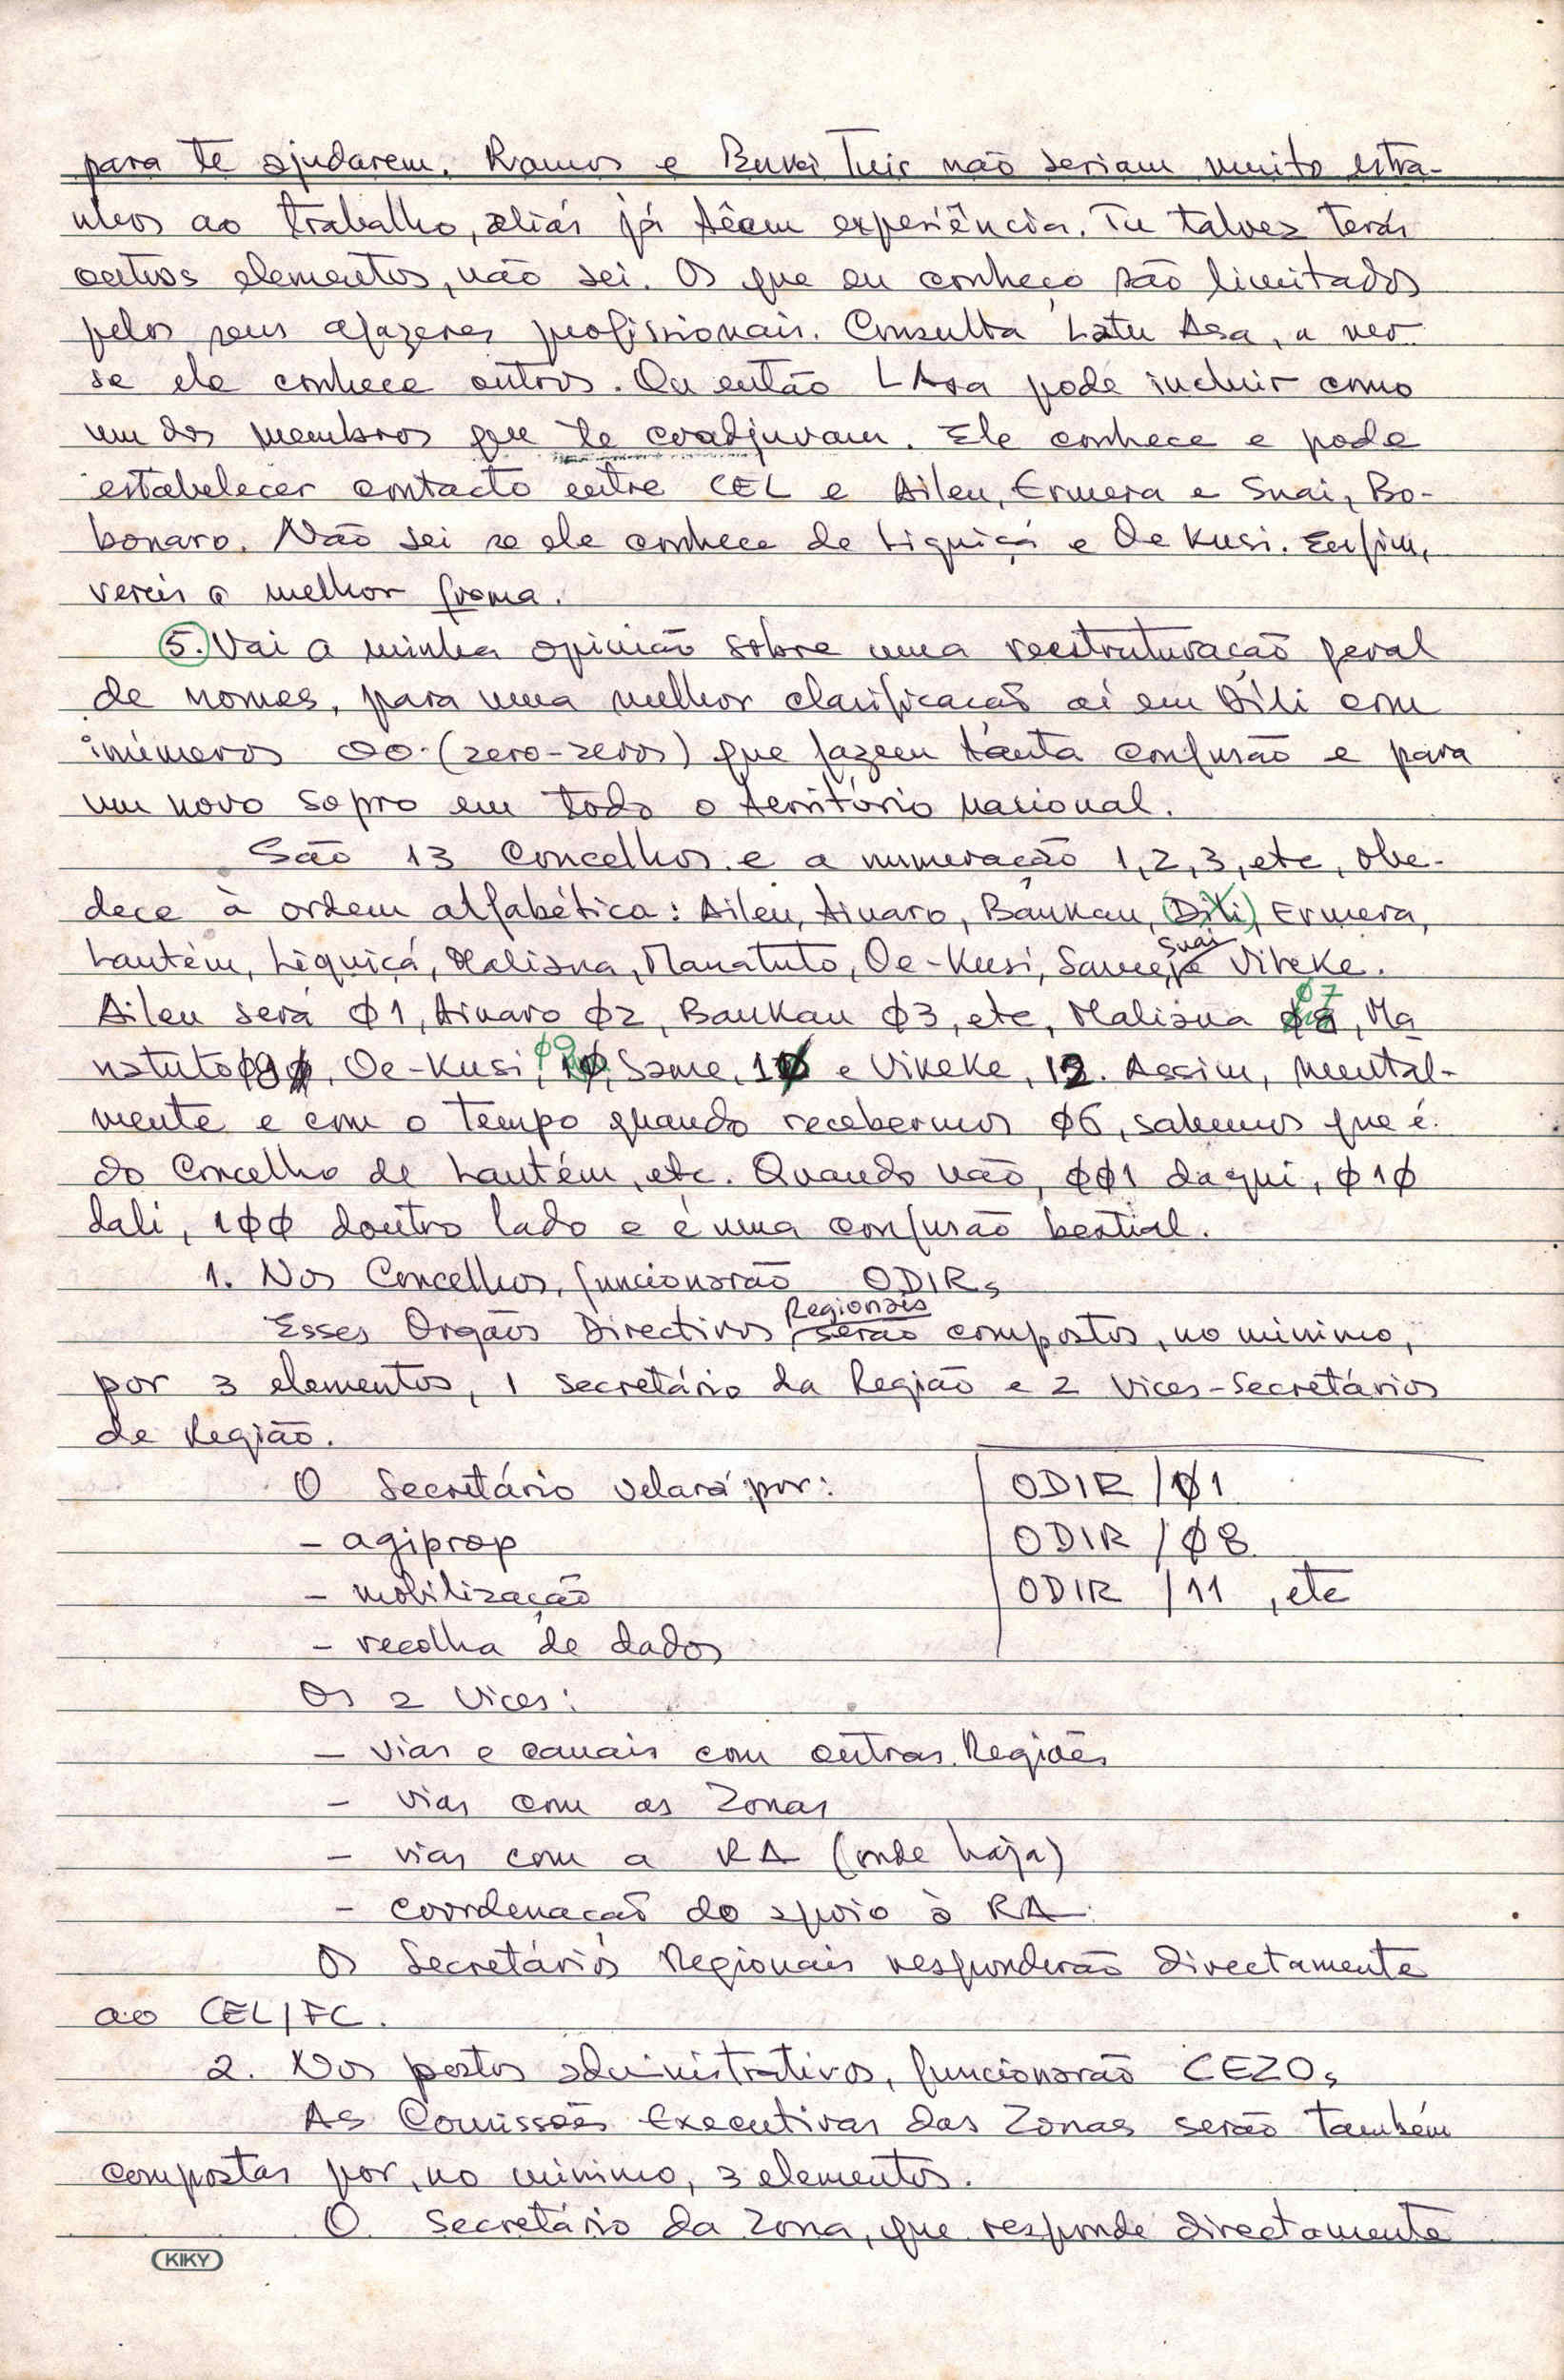 para te ajudarem. Ramos e Bukei Tuir não seriam muito estra-
nhos ao trabalho, aliás já têem experiência. Tu talvez terás
outros elementos, não sei. Os que eu conheço são limitados
pelos seus afazeres profissionais. Consulta Latu Asa, a ver
se ele conhece outros. Ou então LAsa pode incluir como
um dos membros que te coadjuvam. Ele conhece e pode
estabelecer contacto entre CEL e Aileu, Ermera e Suai, Bo-
bonaro. Não sei se ele conhece de Liquiçá e Oe Kusi. Enfim,
vereis a melhor forma.
5. Vai a minha opinião sobre uma reestruturação geral
de nomes, para uma melhor clarificação aí em Díli com
inúmeros OO (zero-zeros) que fazem tanta confusão e para
um novo sopro em todo o território nacional.
São 13 Concelhos e a numeração 1,2,3, etc, obe-
dece à ordem alfabética: Aileu, Ainaro, Baukau, (Díli), Ermera,
Lautém, Liquiçá, Maliana, Manatuto, Oe-Kusi, Same, Suai e Vikeke.
Aileu será Ø1, Ainaro Ø2, Baukau Ø3, etc, Maliana Ø7, Ma
natuto Ø8, Oe-Kusi, Ø9, Same, 1Ø e Vikeke, 12. Assim, mental-
mente e com o tempo quando recebermos Ø6, sabemos que é
do Concelho de Lautém, etc. Quando não, ØØ1 daqui, Ø1Ø
dali, 1ØØ doutro lado e é uma confusão bestial.
1. Nos Concelhos, funcionarão ODIRs
Esses Orgãos Directivos Regionais serão compostos, no mínimo,
por 3 elementos, 1 Secretário da Região e 2 Vices-Secretários
de Região.
O Secretário velará por: ODIR /Ø1
- agiprop ODIR /Ø8
- mobilização ODIR /11, etc
- recolha de dados
Os 2 Vices:
- vias e canais com outras Regiões
- vias com as Zonas
- vias com a RA (onde haja)
- coordenação do apoio à RA
Os Secretários Regionais responderão directamente
ao CEL/FC.
2. Nos postos administrativos, funcionarão CEZOs
As Comissões Executivas das Zonas serão também
compostas por, no mínimo, 3 elementos.
O Secretário da Zona, que responde directamente
KIKY